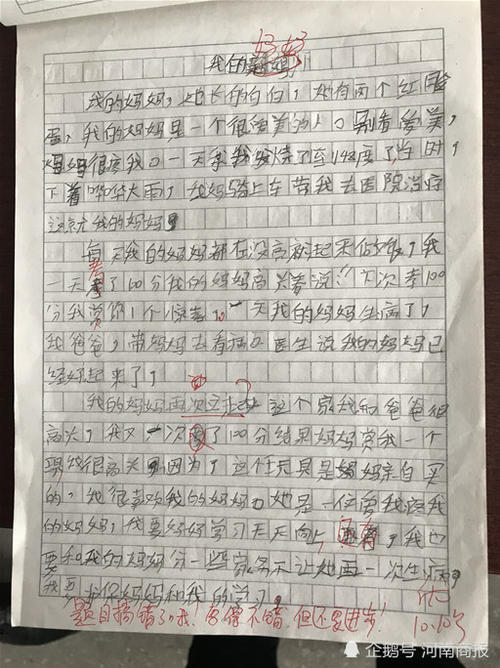 妈妈
我的妈妈
我的妈妈，她长的白白，她有两个红脸
蛋，我的妈妈是一个很爱美的人。别看爱美，
妈妈很疼我。一天我发烧了 度了当时，
下着哗华大雨，她妈骑上车带我去医院治疗
这就是我的妈妈
每天我的妈妈都在没亮就起来做饭，我
考
一天考了100分我的妈妈高兴着说!!下次考100
分我赏你1个惊 一天我的妈妈生病了，
我爸爸，带妈妈去看病。医生说我的妈妈已
经好起来了，
我的妈妈再次立起 这个家我和爸爸很
高兴，我又一次 了100分结果妈妈赏我一个
我很高兴 因为，这个玩具是妈妈亲自买
的，我很喜欢我的妈妈。她是一位爱我疼我
的妈妈，我要好好学习天天向上 还有，我也
要和我的妈妈分一些家务不让她再一次生病，
我要 护保妈妈和我的学习。
题目搞错了哦!写得不错，但还要进步!
优
10.10
企鹅号 河南商报